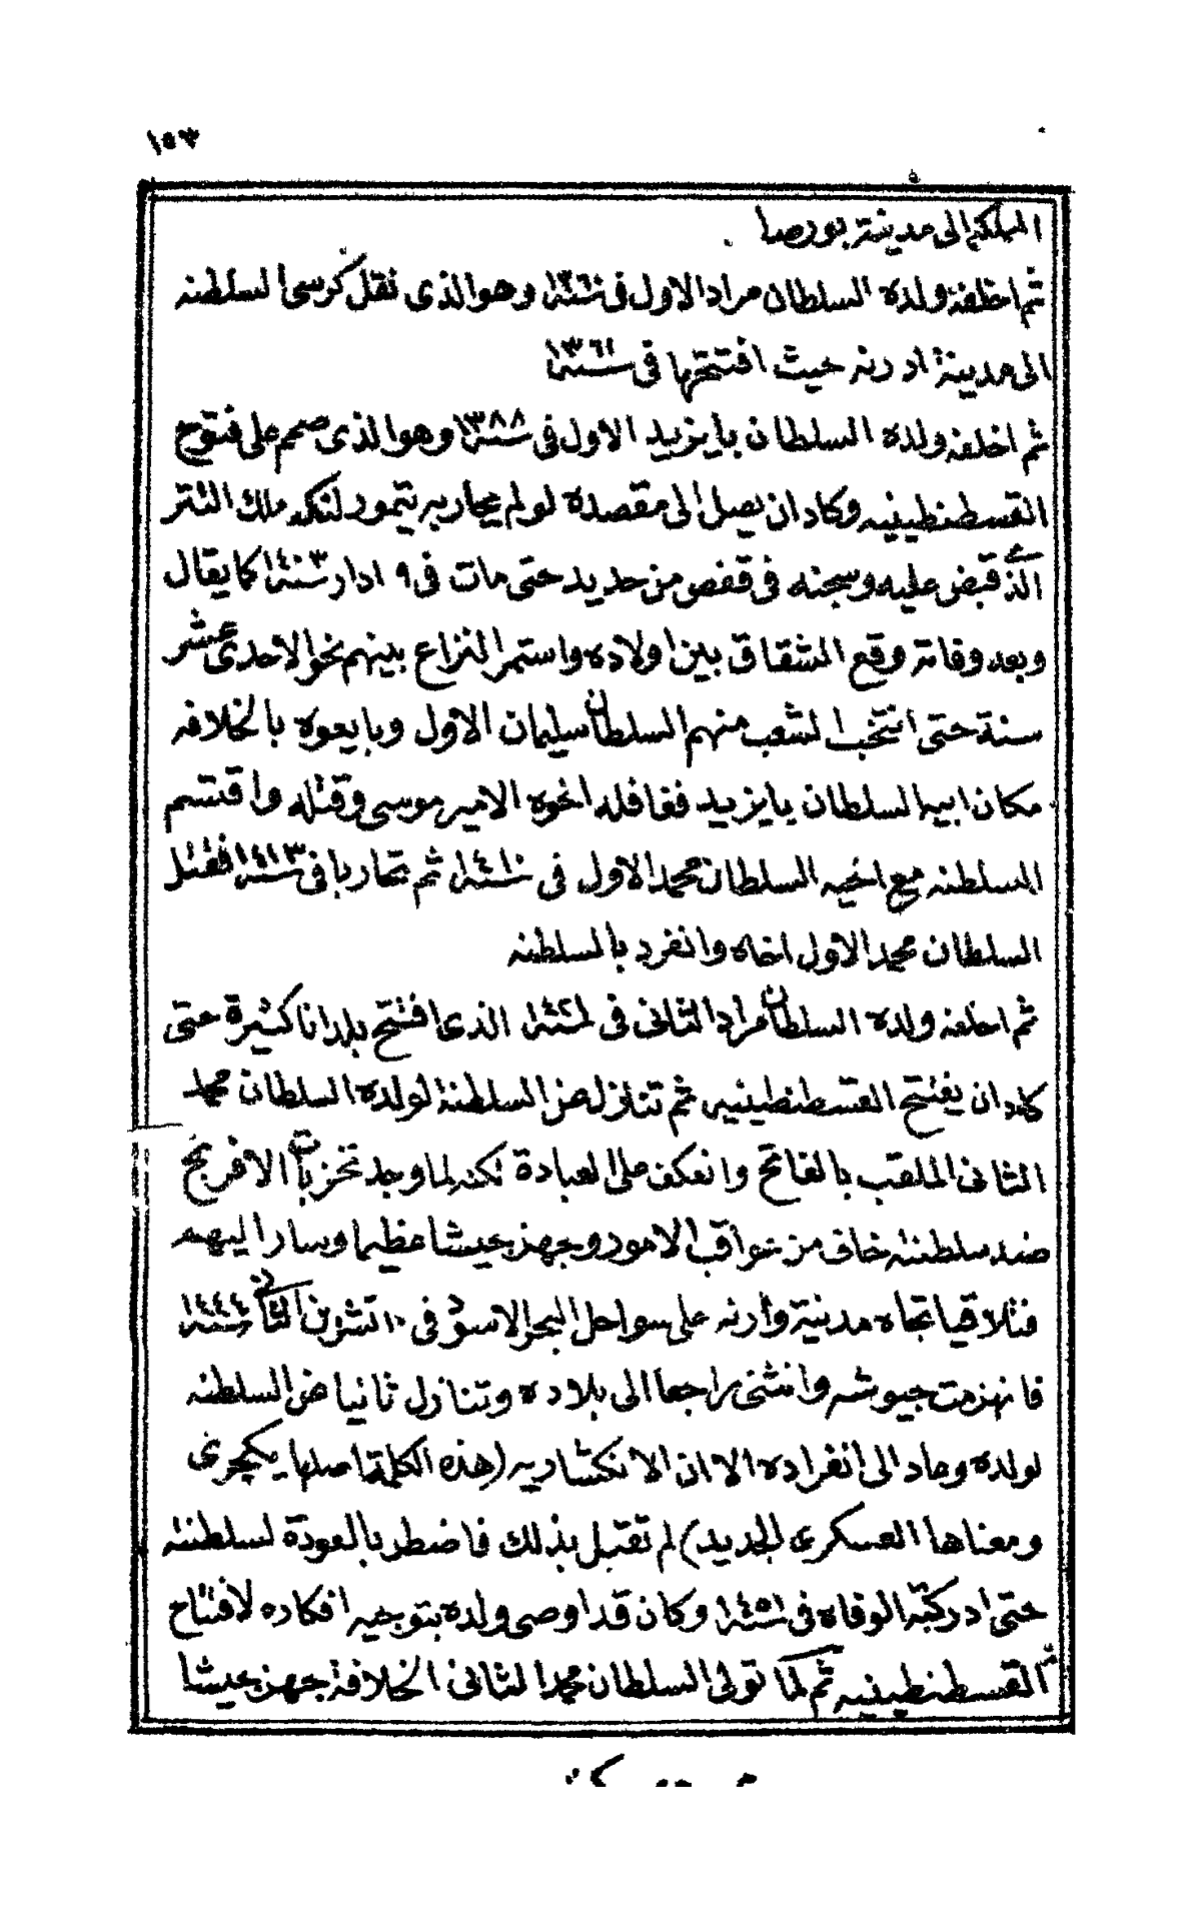 ١٥٣
المملكة الى مدينة بورصا
ثم اخلفه ولده السلطان مراد الاول فى سنة ١٣٦٠ وهو الذى نقل كرسى السلطنه
الى مدينة ادرنه حيث افتتحها فى سنة ١٣٦١
ثم اخلفه ولده السلطان بايزيد الاول فى سنة ١٣٨٨ وهو الذى صمم على فتوح
القسطنطينيه وكاد ان يصل الى مقصده لو لم يحاربه تيمور لنكه ملك التتر
الذى قبض عليه وسجنه فى قفص من حديد حتى مات فى ٩ ادار سنة ١٤٠٣ كما يقال
وبعد وفاته وقع الشقاق بين اولاده واستمر النزاع بينهم نحو الاحدى عشر
سنة حتى انتخب الشعب منهم السلطان سليمان الاول وبايعوه بالخلافه
مكان ابيه السلطان بايزيد فغافله اخوه الامير موسى وقتله واقتسم
السلطنه مع اخيه السلطان محمد الاول فى سنة ١٤١٠ ثم تحاربا فى سنة ١٤١٣ فقتل
السلطان محمد الاول اخاه وانفرد بالسلطنه
ثم اخلفه ولده السلطان مراد الثانى فى سنة الذى افتتح بلدانا كثيرة حتى
كاد ان يفتتح القسطنطينيه ثم تنازل عن السلطنة لولده السلطان محمد
الثانى الملقب بالفاتح وانعكف على العبادة لكنه لما وجد تحزبات الافرنج
ضد سلطنته خاف من عواقب الامور وجهز جيشا عظيما وسار اليهم
فتلاقيا تجاه مدينة وارنه على سواحل البحر الاسود فى ١٠ تشرين الثانى سنة ١٤٤٤
فانهزمت جيوشه وانثنى راجعا الى بلاده وتنازل ثانيا عن السلطنه
لولده وعاد الى انفراده الا ان الانكشاريه (هذه الكلمة اصلها يكيچرى
ومعناها العسكرى الجديد) لم تقبل بذلك فاضطر بالعودة لسلطنته
حتى ادركته الوفاه فى سنة ١٤٥١ وكان قد اوصى ولده بتوجيه افكاره لافتتاح
القسطنطينيه ثم لما تولى السلطان محمد الثانى الخلافة جهز جيشا